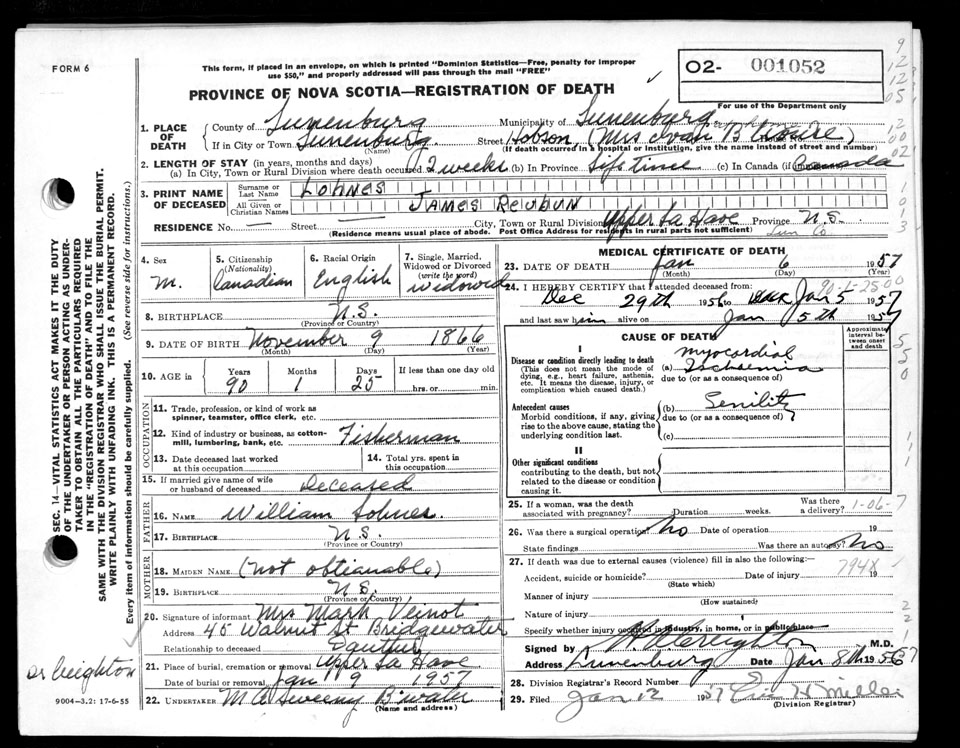 FORM 6
This form, if placed in an envelope, on which is printed "Dominion Statistics—Free, penalty for improper
use $50," and properly addressed will pass through the mail "FREE"
O2- 001052
For use of the Department only
PROVINCE OF NOVA SCOTIA—REGISTRATION OF DEATH
1. PLACE OF DEATH
County of Lunenburg Municipality of Lunenburg
If in City or Town Lunenburg Street Hobson, (Mrs Ivan B
(Name) (If death occurred in a hospital or institution, give the name instead of street and number)
2. LENGTH OF STAY (in years, months and days)
(a) In City, Town or Rural Division where death occurred 2 weeks (b) In Province Life time (c) In Canada (if immigrant) Canada
3. PRINT NAME OF DECEASED
Surname or Last Name LOHNES
All Given or Christian Names JAMES REUBUN
RESIDENCE No. — Street — City, Town or Rural Division Upper La Have Province N.S.
(Residence means usual place of abode. Post Office Address for residents in rural parts not sufficient) Lun Co
4. Sex M.
5. Citizenship (Nationality) Canadian
6. Racial Origin English
7. Single, Married, Widowed or Divorced (write the word) Widowed
8. BIRTHPLACE N.S.
(Province or Country)
9. DATE OF BIRTH November 9 1866
(Month) (Day) (Year)
10. AGE IN Years 90 Months 1 Days 25 If less than one day old
hrs. or min.
OCCUPATION
11. Trade, profession, or kind of work as
spinner, teamster, office clerk, etc.
12. Kind of industry or business, as cotton-
mill, lumbering, bank, etc. Fisherman
13. Date deceased last worked
at this occupation
14. Total yrs. spent in
this occupation
15. If married give name of wife
or husband of deceased Deceased
FATHER
16. NAME William Lohnes.
17. BIRTHPLACE N.S.
(Province or Country)
MOTHER
18. MAIDEN NAME (not obtianable)
19. BIRTHPLACE N.S.
(Province or Country)
20. Signature of informant Mrs Mark Veinot
Address 45 Walnut St Bridgewater
Relationship to deceased
21. Place of burial, cremation or removal Upper La Have
Date of burial or removal Jan 9 1957
22. UNDERTAKER M A Sweeny B'water
(Name and address)
9004—3.2: 17-6-55
MEDICAL CERTIFICATE OF DEATH
23. DATE OF DEATH Jan 6 1957
(Month) (Day) (Year)
24. I HEREBY CERTIFY that I attended deceased from:
Dec 29th 1956 to Jan 5 1957
and last saw him alive on Jan 5th 1957
CAUSE OF DEATH
Approximate interval between onset and death
I
Disease or condition directly leading to death
(This does not mean the mode of
dying, e.g., heart failure, asthenia,
etc. It means the disease, injury, or
complication which caused death.)
Myocardial
(a) Ischaemia
due to (or as a consequence of)
Antecedent causes
Morbid conditions, if any, giving
rise to the above cause, stating the
underlying condition last.
(b) Senility
due to (or as a consequence of)
(c)
II
Other significant conditions
contributing to the death, but not
related to the disease or condition
causing it.
25. If a woman, was the death
associated with pregnancy? Duration weeks.
Was there
a delivery?
1-06-7
26. Was there a surgical operation? No Date of operation 19
State findings Was there an autopsy? No
27. If death was due to external causes (violence) fill in also the following:—
794X
Accident, suicide or homicide? Date of injury 19
(State which)
Manner of injury
(How sustained)
Nature of injury
Specify whether injury occurred in industry, in home, or in public place
Signed by Creighton M.D.
Address Lunenburg Date Jan 8th 1957
28. Division Registrar's Record Number
29. Filed Jan 12 1957 H Miller
(Division Registrar)
SEC. 14—VITAL STATISTICS ACT MAKES IT THE DUTY
OF THE UNDERTAKER OR PERSON ACTING AS UNDER-
TAKER TO OBTAIN ALL THE PARTICULARS REQUIRED
IN THE "REGISTRATION OF DEATH" AND TO FILE THE
SAME WITH THE DIVISION REGISTRAR WHO SHALL ISSUE THE BURIAL PERMIT.
WRITE PLAINLY WITH UNFADING INK. THIS IS A PERMANENT RECORD.
Every item of information should be carefully supplied. (See reverse side for instructions.)
Dr Creighton